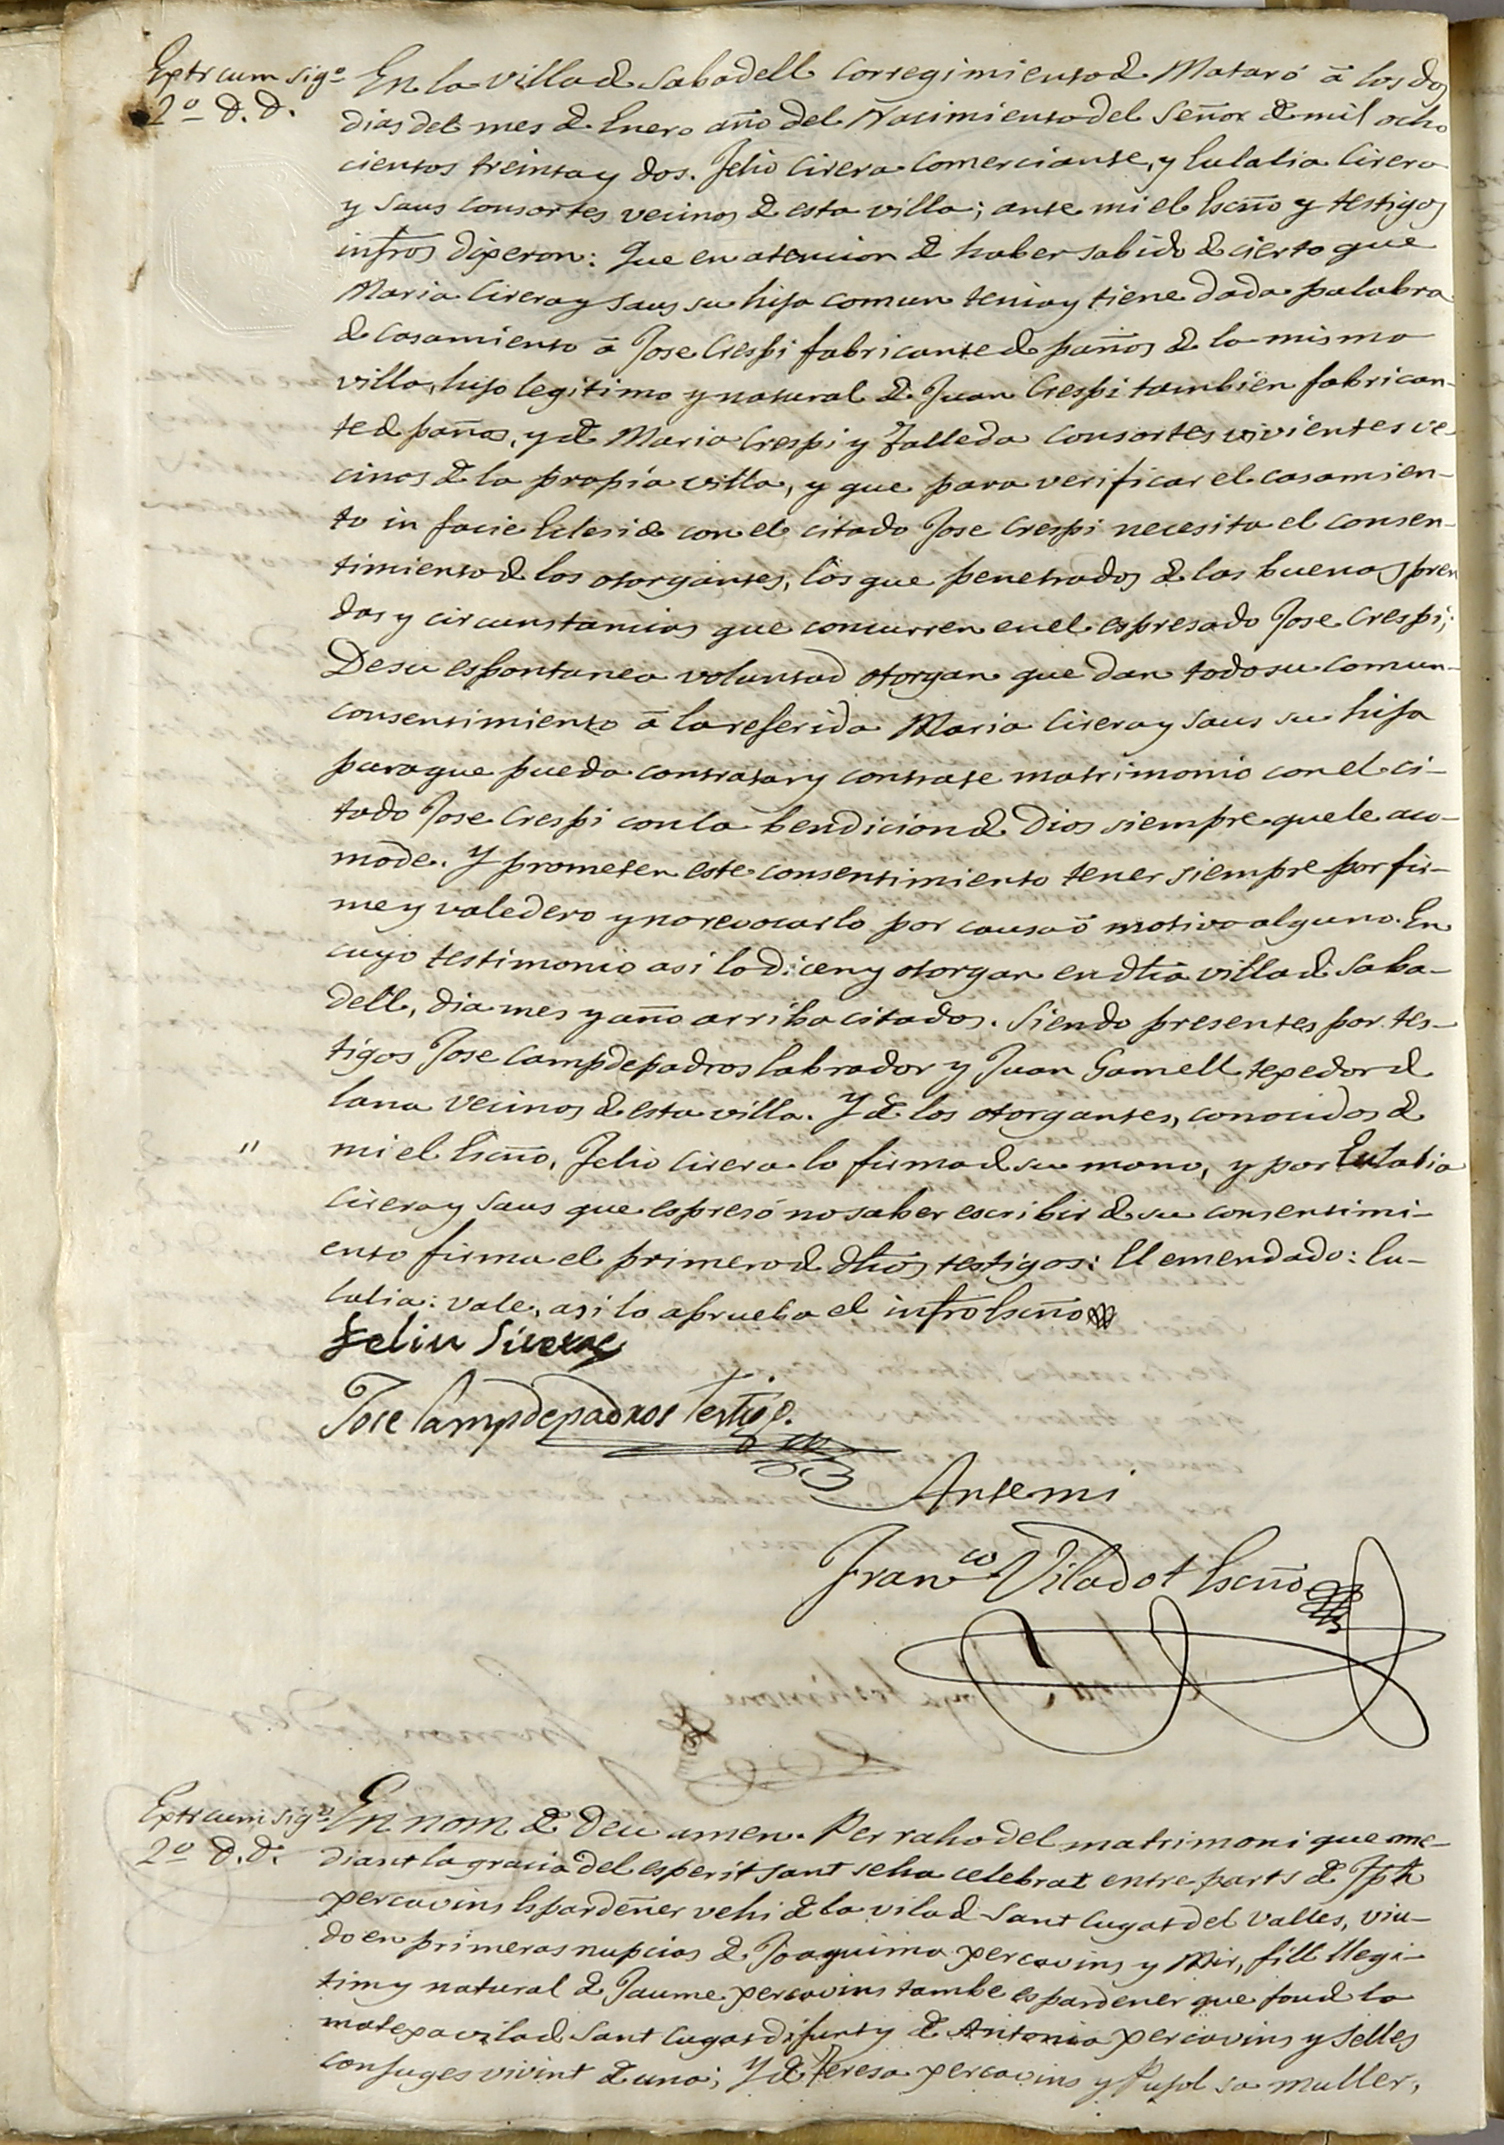 Extr cum sigº
2º d. d.
En la villa de Sabadell Corregimiento de Mataró â los dos
dias del mes de Enero año del Nacimiento del Señor de mil ocho
cientos treinta y dos. Felio Cirera Comerciante, y Eulalia Cirera
y Saus consortes vecinos de esta villa; ante mi el Escño y testigos
infros digeron: Que en atencion de haber sabido de cierto que
Maria Cirera y Saus su hija comun tenia y tiene dada palabra
de casamiento â Jose Crespi fabricante de paños de la misma
villa, hijo legitimo y natural de Juan Crespi tambien fabrican-
te de paños, y de Maria Crespi y Falleda consortes vivientes ve
cinos de la propia villa, y que para verificar el casamien-
to in facie Eclesiæ con el citado Jose Crespi necesita el consen-
timiento de los otorgantes, los que penetrados de las buenas pren
das y circunstancias que concurren en el espresado Jose Crespi;
De su espontanea voluntad otorgan que dan todo su comun
consentimiento â la referida Maria Cirera y Saus su hija
para que pueda contratar y contrate matrimonio con el ci-
tado Jose Crespi con la bendicion de Dios siempre que le aco-
mode. Y prometen este consentimiento tener siempre por fir-
me y valedero y no revocarlo por causa ô motivo alguno. En
cuyo testimonio asi lo dicen y otorgan en dha villa de Saba-
dell, dia mes y año arriba citados. Siendo presentes por tes-
tigos Jose Campdepadros labrador y Juan Gamell texedor de
lana vecinos de esta villa. Y de los otorgantes, conocidos de
" mi el Escño, Felio Cirera lo firma de su mano, y por Eulalia
Cirera y Saus que espresó no saber escribir de su consentimi-
ento firma el primero de dhos testigos: El emendado: Eu-
lalia: vale, asi lo aprueba el infro Escño
Feliu Sireras
Jose Campdepadros Testigo.
Ante mi
Franco Viladot Escño
Extr cum sigº
2º d. d.
En nom de Deu amen. Per raho del matrimoni que me-
diant la gracia del esperit sant se ha celebrat entre parts de Jph
percavins Espardeñer vehi de la vila de Sant Cugat del Valles, viu-
do en primeras nupcias de Joaquima percavins y Mir, fill llegi-
tim y natural de Jaume percavins tambe espardener que fou de la
matexa vila de Sant Cugat difunt y de Antonia percavins y Selles
conjuges vivint de una; Y de Teresa percavins y Pujol sa muller,